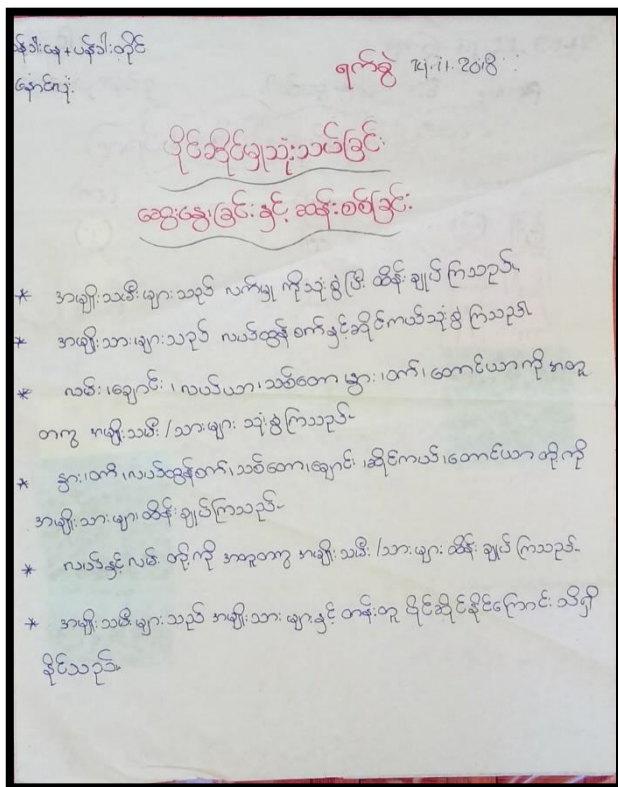 ပန်ဒါးနေ+ပန်ဒါးတိုင်
ရက်စွဲ 14.11.2018
ပိုင်ဆိုင်မှုသုံးသပ်ခြင်း
ဆွေးနွေးခြင်းနှင့် ဆန်းစစ်ခြင်း
* အမျိုးသမီးများသည် လက်မှု ကိုသုံးစွဲပြီး ထိန်းချုပ်ကြသည်။
* အမျိုးသားများသည် လယ်ထွန်စက်နှင့်ဆိုင်ကယ်သုံးစွဲကြသည်။
* လမ်း၊ချောင်း၊လယ်ယာ၊သစ်တော၊နွား၊ဝက်၊တောင်ယာကို အတူ
တကွ အမျိုးသမီး/သားများ သုံးစွဲကြသည်။
* နွား၊ဝက်၊လယ်ထွန်စက်၊သစ်တော၊ချောင်း၊ဆိုင်ကယ်၊တောင်ယာ တို့ကို
အမျိုးသားများ ထိန်းချုပ်ကြသည်။
* လယ်နှင့်လမ်း တို့ကို အတူတကွ အမျိုးသမီး/သားများ ထိန်းချုပ်ကြသည်။
* အမျိုးသမီးများသည် အမျိုးသားများနှင့် တန်းတူ ပိုင်ဆိုင်နိုင်ကြောင်း သိရှိ
နိုင်သည်။